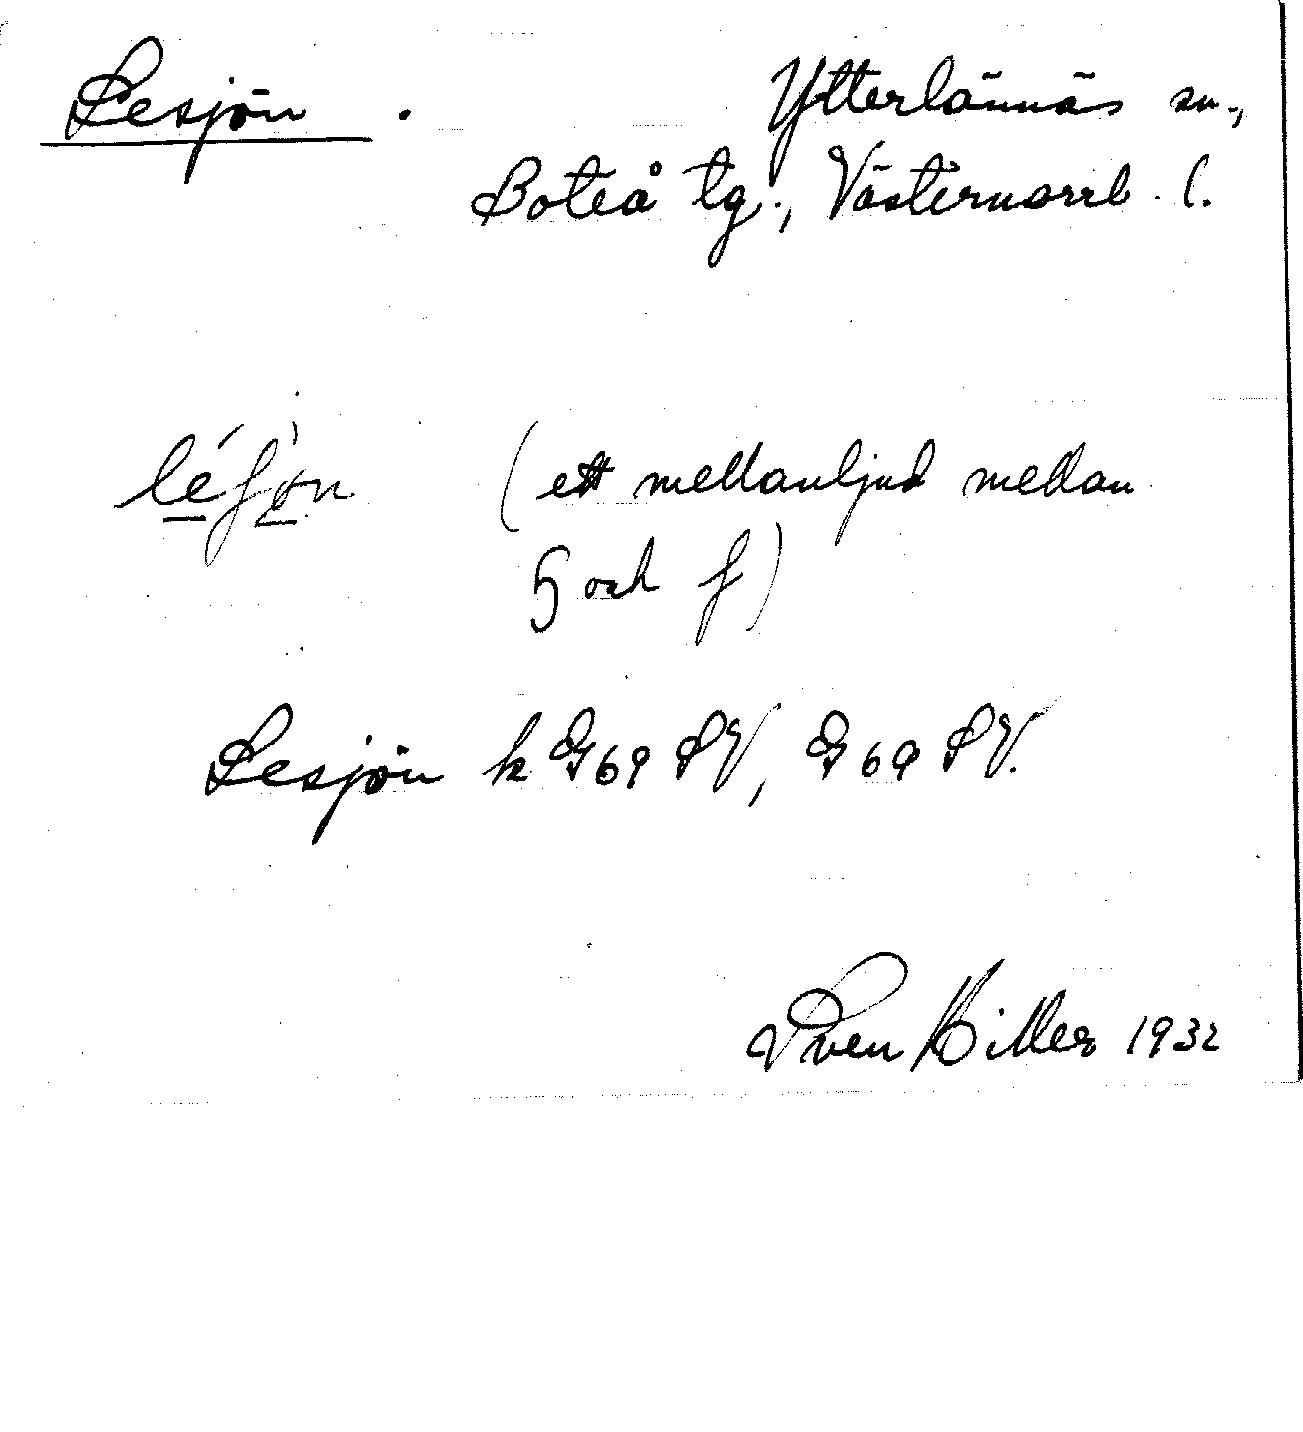 Lesjön . Ytterlännäs sn.,
Boteå tg., Västernorrl. l.
(ett mellanljud mellan
och ʃ)
Lesjön k G69 SV, G69 SV.
Sven Hiller 1932